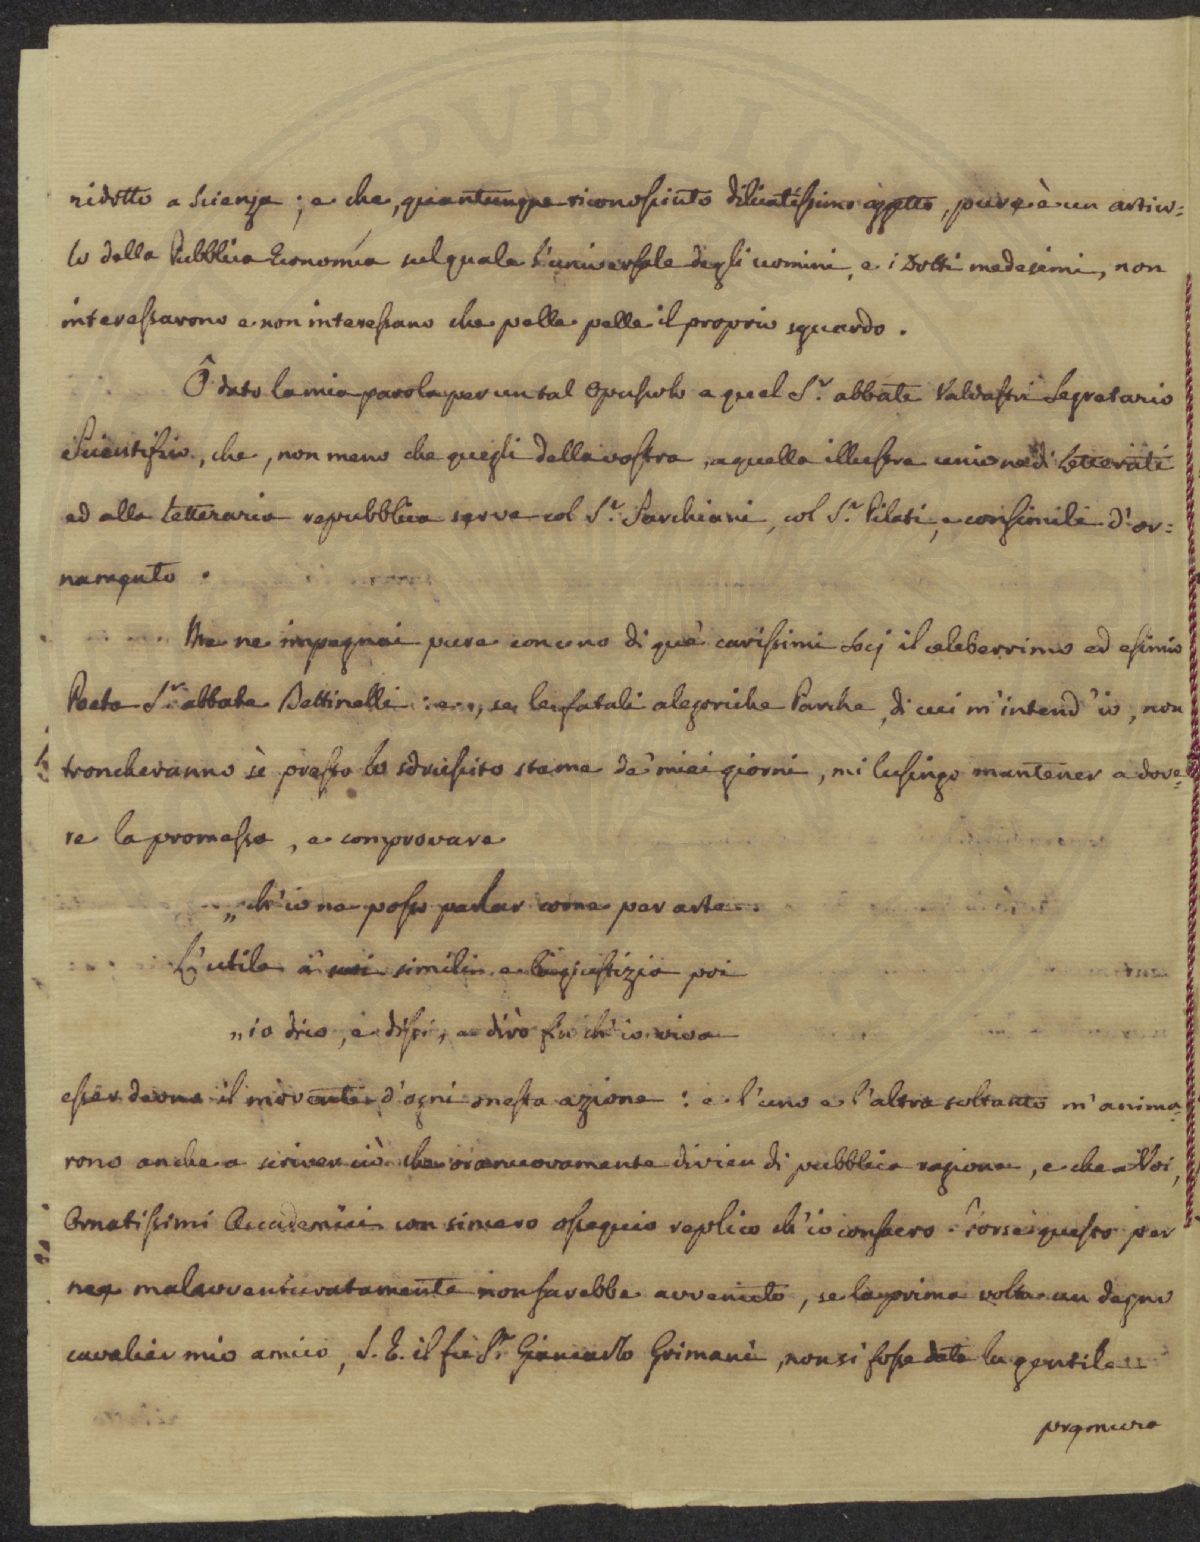 PVBLIC
ridotto a Scienza ; e che, quantunque riconosciuto dilicatissimo oggetto, pure è un artico=
lo della Pubblica Economía sul quale l'universale degli uomini, e i Dotti medesimi, non
interessarono e non interessano che pelle pelle il proprio sguardo.
Ô dato la mia parola per un tal Opuscolo a quel S.r abbate Valdastri Segretario
Scientifico, che, non meno che quegli della vostra, a quella illustre unione di Letterati
ed alla letteraria repubblica serve col S.r Sarchiani, col S.r Pilati, e consimili d'or=
namento.
Me ne impegnai pure con uno di que' carissimi Socj il celeberrimo ed esimio
Poeta S.r abbate Bettinelli : e, se le fatali alegoriche Parche, di cui m'intend'io, non
troncheranno sè presto lo sdruscito stame de' miei giorni, mi lusingo mantener a dove=
re la promessa, e comprovare
„ ch'io ne posso parlar come per arte.
L'utile a' suoi simili e la giustizia poi
„ io dico, e dissi, e dirò fin ch'io viva
esser denno il movente d'ogni onesta azione : e l'uno e l'altra soltanto m'anima=
rono anche a scriver ciò che ora nuovamente divien di pubblica ragione, e che a Voi,
Ornatissimi Accademici con sincero ossequio replico ch'io consacro. Forse questo per
me malavventuratamente non sarebbe avvenuto, se la prima volta un degno
cavalier mio amico, S. E. il fù S.r Giancarlo Grimani, non si fosse data la gentile
premura